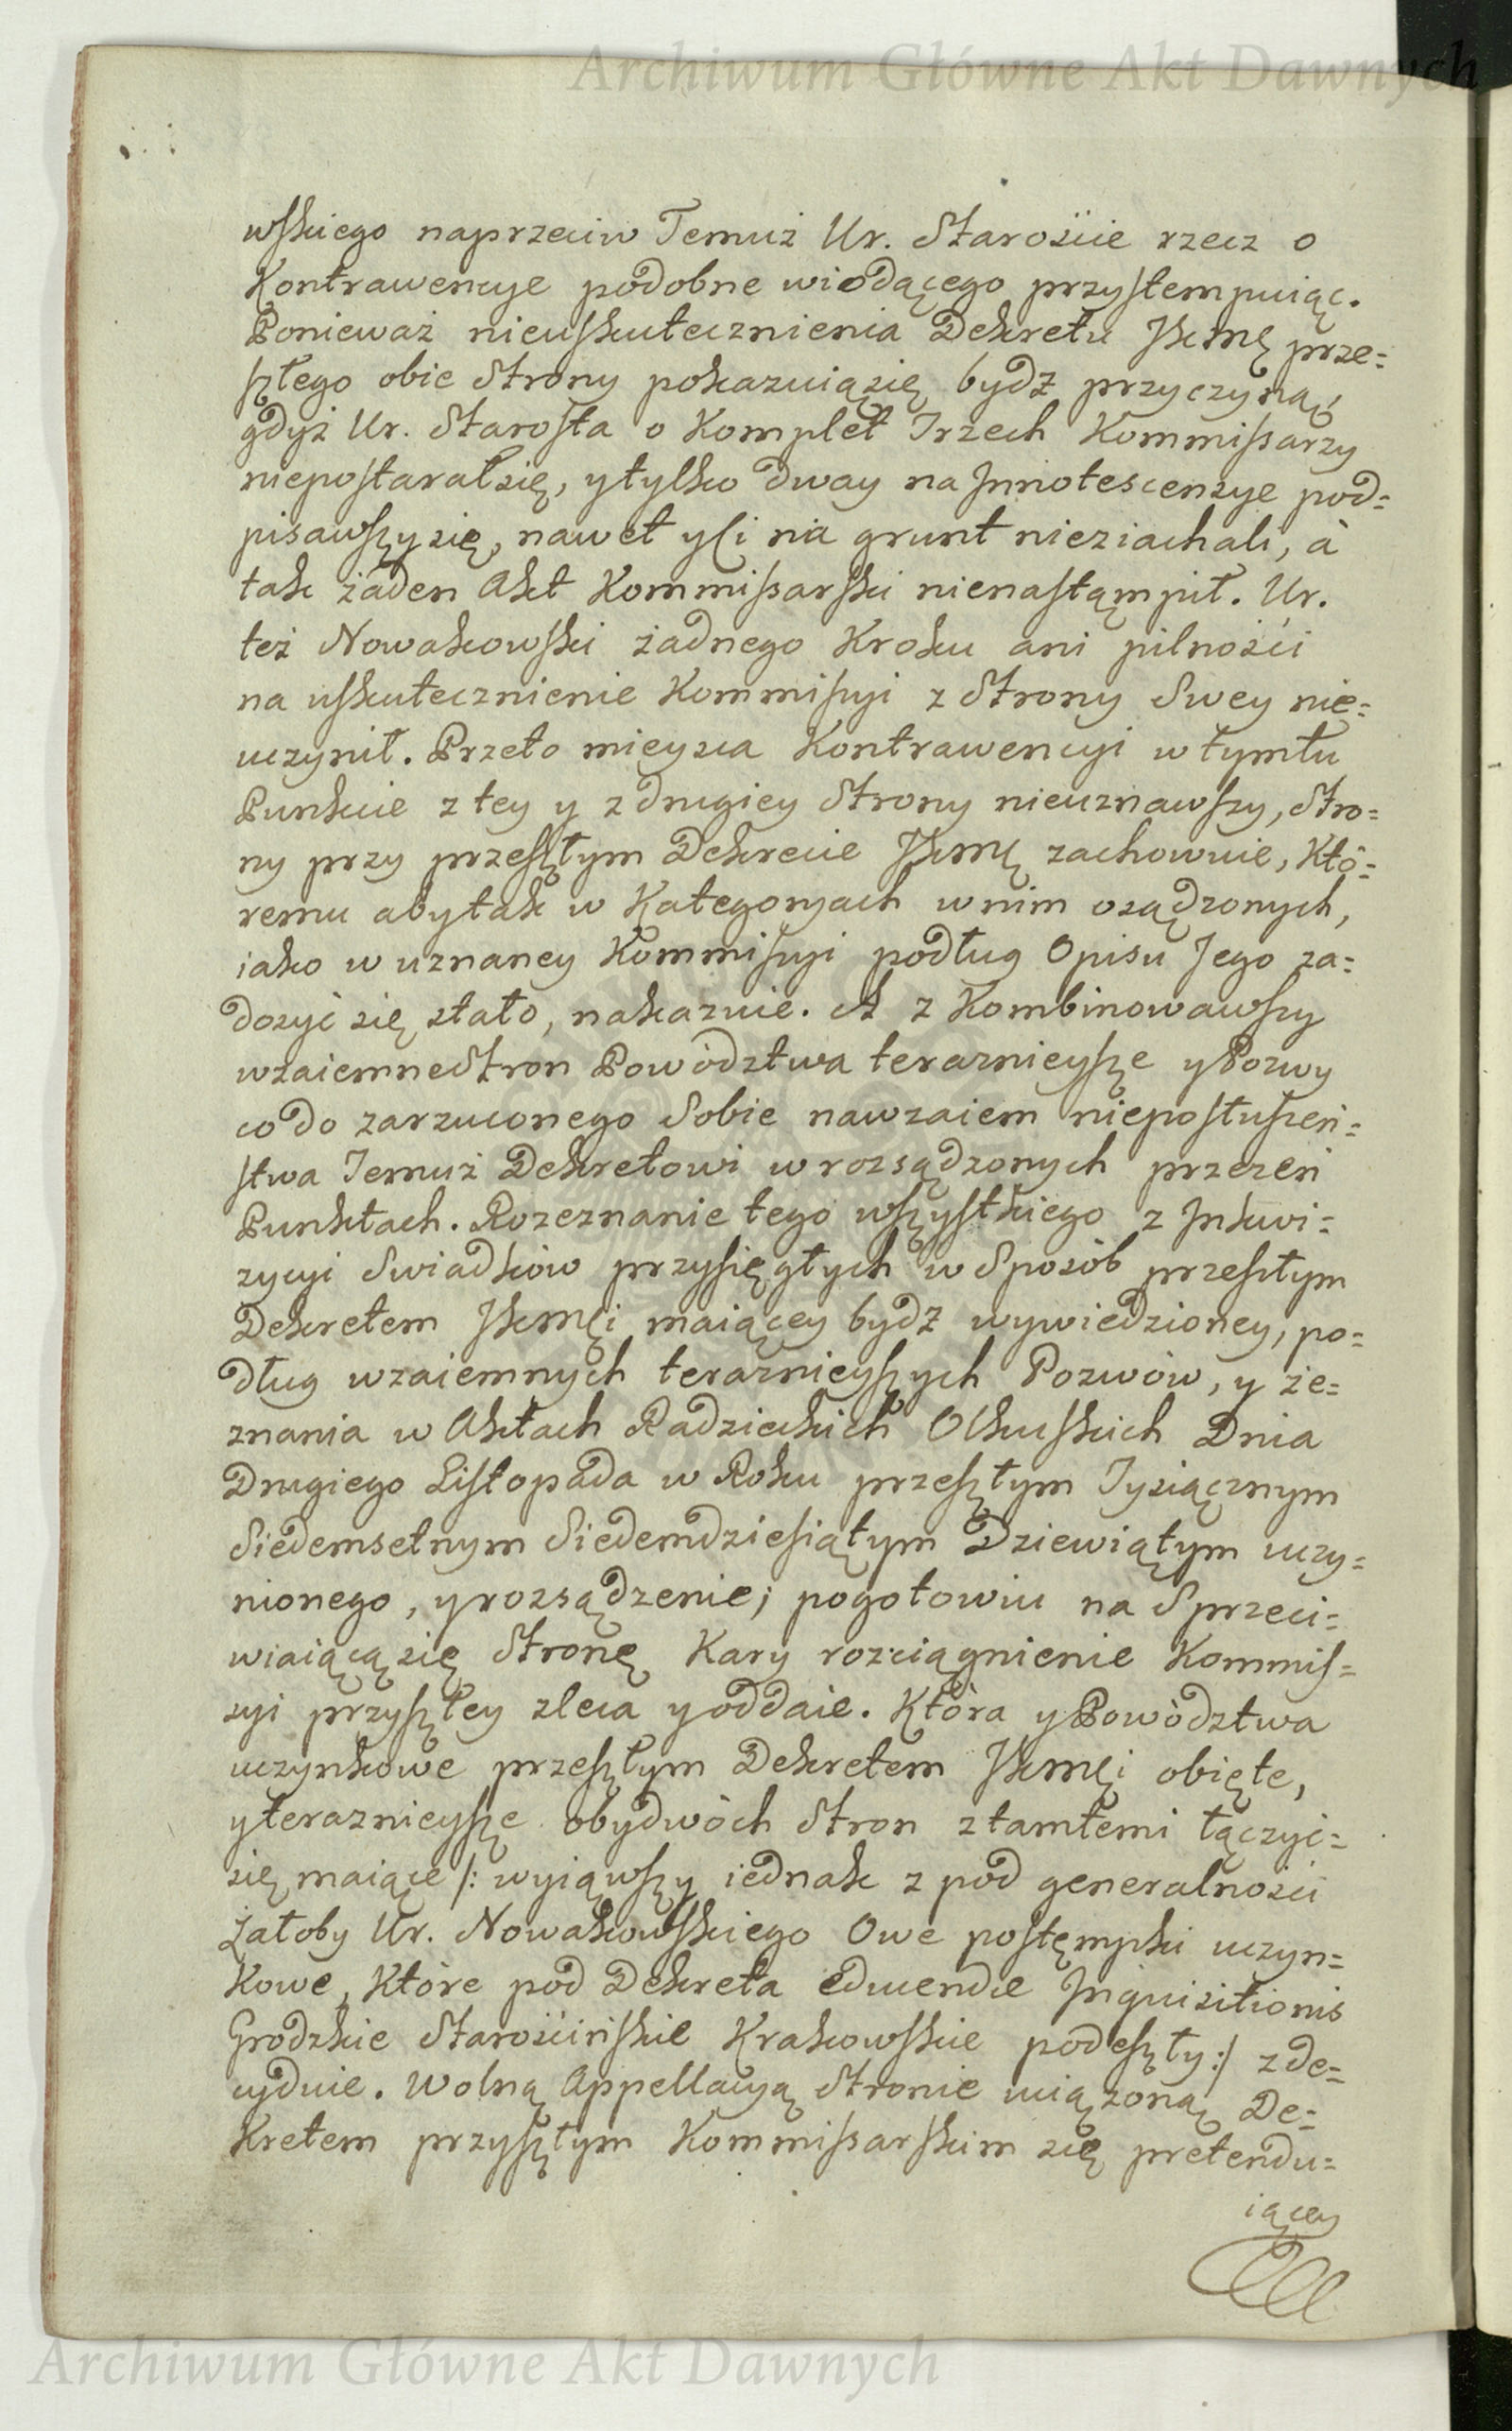 Archiwum Główne Akt Dawnych
wskiego naprzeciw Temuż Ur. Starościie rzecz o
Kontrawencye podobne wiodącego przystempuiąc.
Ponieważ nieuskutecznienia Dekretu JKMĘ prze=
szłego obie Strony pokazuiąsię bydź przyczyną,
gdyż Ur. Starosta o Komplet Trzech Kommissarzy
niepostarałsię, ytylko dway na Jnnotescensye pod=
pisawszysię, nawet yci na grunt nieziachali, à
tak żaden Akt Kommissarski nienastąmpił. Ur.
też Nowakowski żadnego Kroku ani pilności
na uskutecznienie Kommissyi z Strony Swey nie=
uczynił. Przeto mieysca Kontrawencyi w tymtu
Punkcie z tey y z drugiey Strony nieuznawszy, Stro=
ny przy przeszłym Dekrecie JKMĘ zachowuie, Któ=
remu abytak w Kategoryach wnim osądzonych,
iako w uznaney Kommissyi podług Opisu Jego za=
dosyć się stało, nakazuie. A z Kombinowawszy
wzaiemneStron Powództwa teraznieysze yPozwy
co do zarzuconego Sobie nawzaiem nieposłuszeń=
stwa Temuż Dekretowi w rozsądzonych przezeń
Punktach. Rozeznanie tego wszystkiego z Jnkwi=
zycyi Swiadków przysięgłych w Sposób przeszłym
Dekretem JKMĘi maiącey bydź wywiedzioney, po=
dług wzaiemnych teraznieyszych Pozwów, y ze=
znania w Aktach Radzieckich Olkuskich Dnia
Drugiego Listopada w Roku przeszłym Tysiącznym
Siedemsetnym Siedemdziesiątym Dziewiątym uczy=
nionego, yrozsądzenie; pogotowiu na Sprzeci=
wiaiącąsię Stronę Kary rozciągnienie Kommis=
syi przyszłey zleca yoddaie. Która yPowództwa
uczynkowe przeszłym Dekretem JKMĘi obięte,
yteraznieysze obydwóch Stron ztamtemi łączyć=
się maiące /: wyiąwszy iednak z pod generalności
Żałoby Ur. Nowakowskiego Owe postęmpki uczyn=
kowe, Które pod Dekreta educendæ Jnquisitionis
Grodzkie Starościńskie Krakowskie podeszły:/ zde=
cyduie. Wolną Appellacyą Stronie uciążoną De=
Kretem przyszłym Kommissarskim się pretendu=
iącey
Archiwum Główne Akt Dawnych